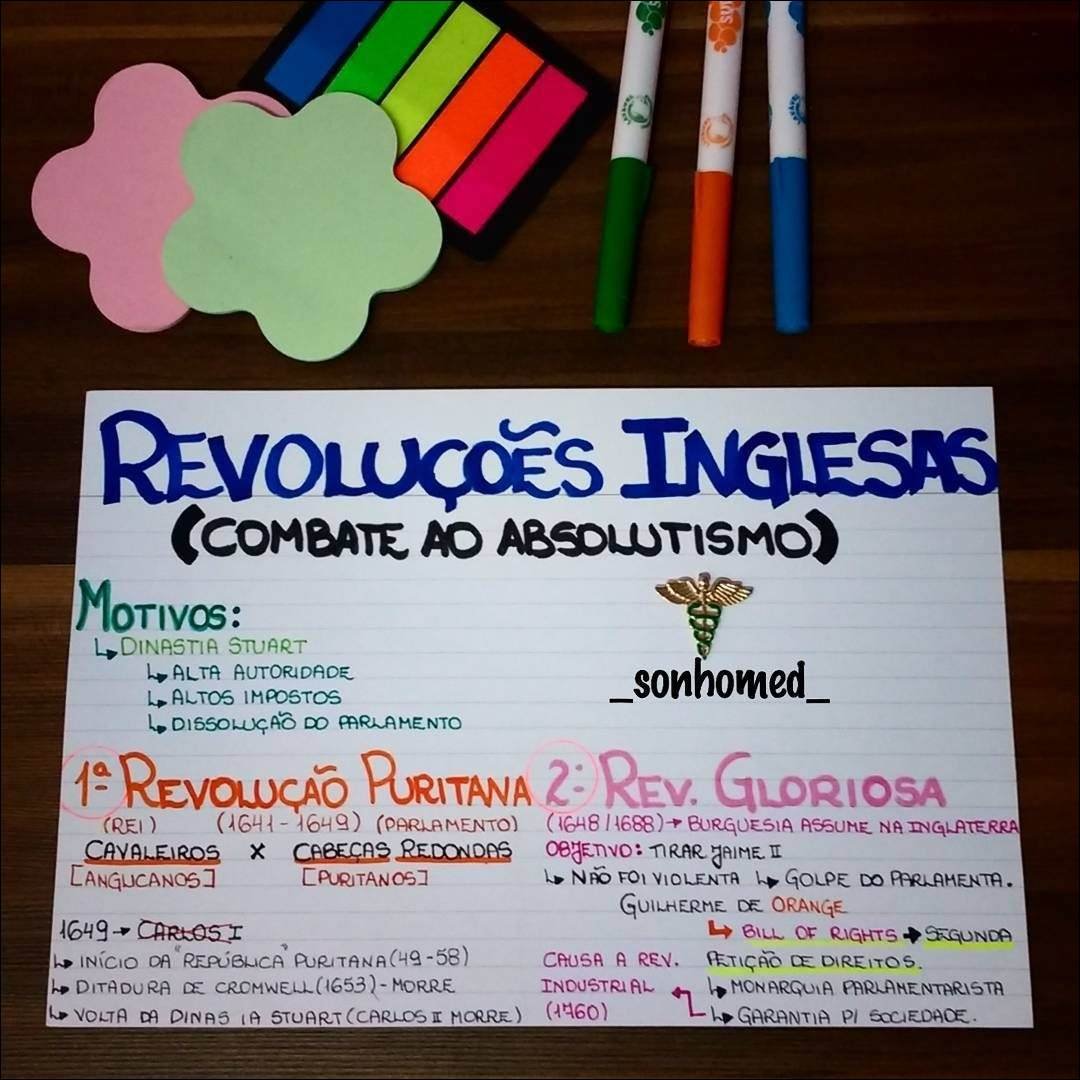 REVOLUÇOẼS INGLESAS
(COMBATE AO ABSOLUTISMO)
MOTIVOS:
↳ DINASTIA STUART
↳ ALTA AUTORIDADE
↳ ALTOS IMPOSTOS
↳ DISSOLUÇAÕ DO PARLAMENTO
_sonhomed_
1ª REVOLUÇÃO PURITANA
(REI) (1641-1649) (PARLAMENTO)
CAVALEIROS X CABEÇAS REDONDAS
[ANGLICANOS] [PURITANOS]
1649 → CARLOS I
↳ INÍCIO DA "REPÚBLICA" PURITANA (49-58)
↳ DITADURA DE CROMWELL (1653) - MORRE
↳ VOLTA DA DINAS IA STUART (CARLOS II MORRE)
2ª REV. GLORIOSA
(1648/1688) → BURGUESIA ASSUME NA INGLATERRA
OBJETIVO: TIRAR JAIME II
↳ NÃO FOI VIOLENTA ↳ GOLPE DO PARLAMENTA.
GUILHERME DE ORANGE
↳ BILL OF RIGHTS → SEGUNDA
PETIÇÃO DE DIREITOS.
↳ MONARQUIA PARLAMENTARISTA
↳ GARANTIA P/ SOCIEDADE.
CAUSA A REV.
INDUSTRIAL
(1760)